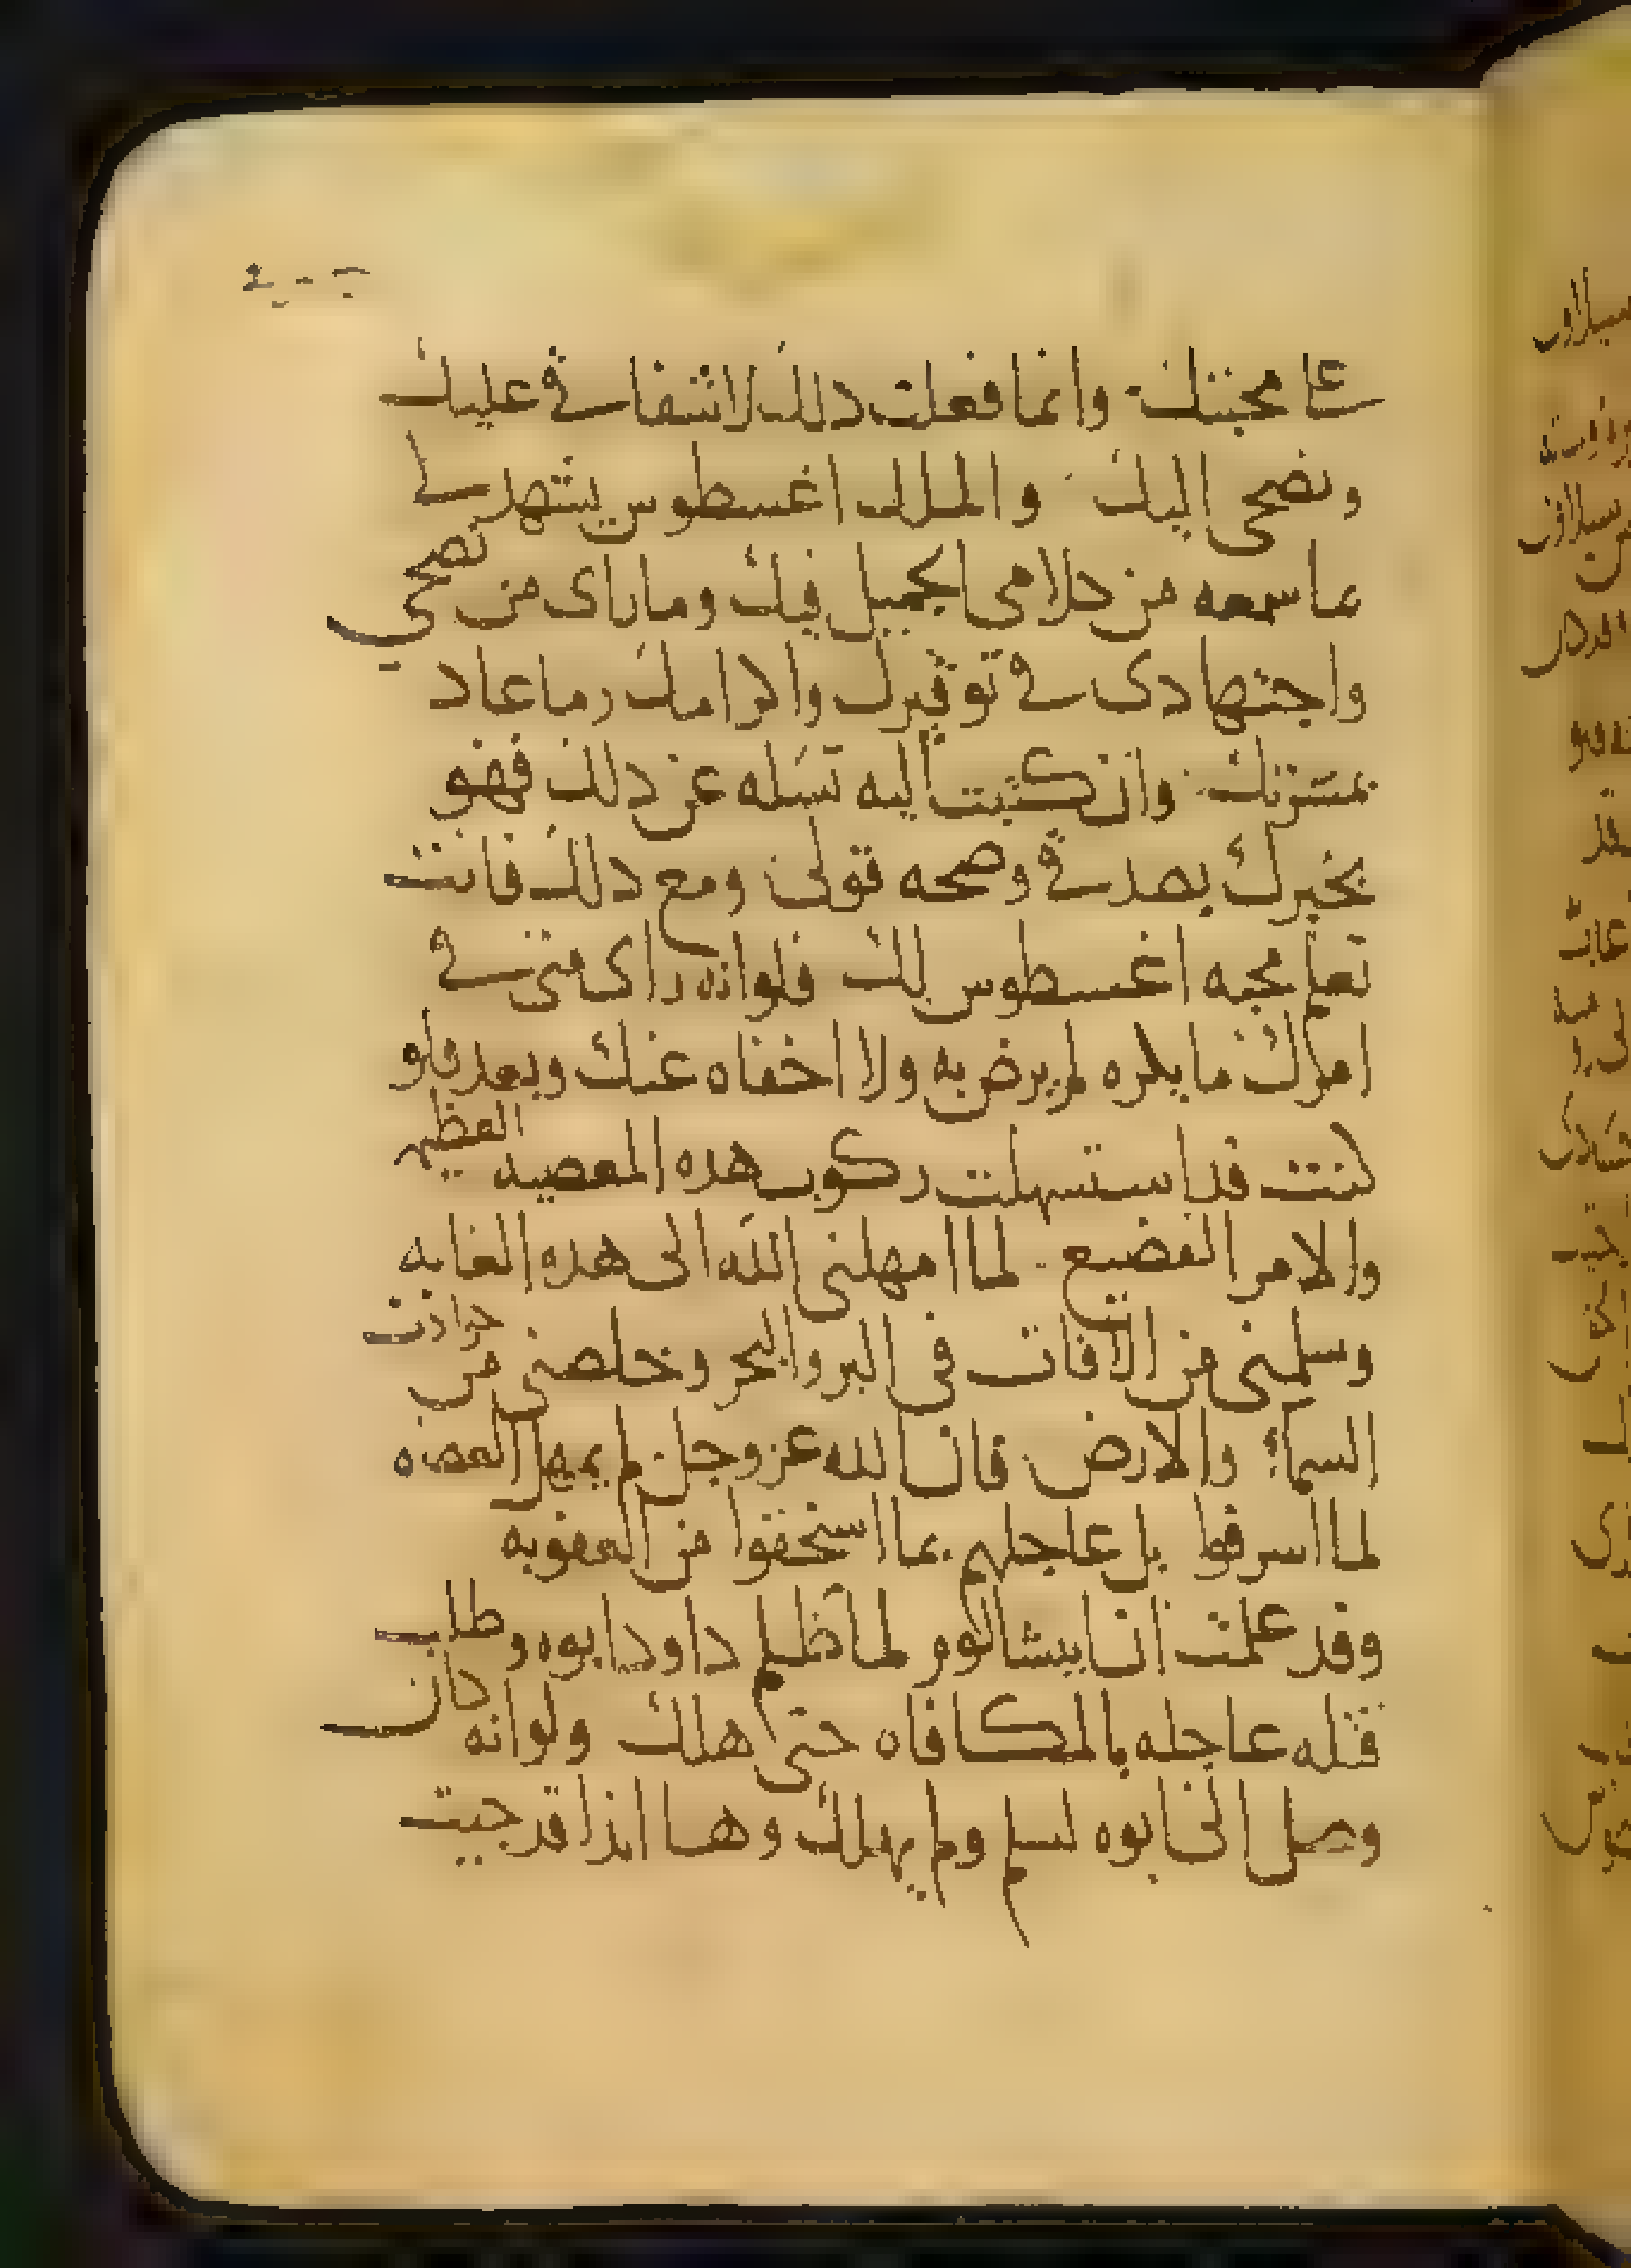 على محبتك وانما فعلت دلك لاشفاقي عليك
ونصحي اليك والملك اغسطوس يشهد لي
بما سمعه من كلامي الجميل فيك وما راى من نصحي
واجتهادى في توقيرك واكرامك وما عاد
بمسرتك وان كتبت اليه تسله عن دلك فهو
يخبرك بصدقي وصحه قولى ومع دلك فانت
تعلم محبه اغسطوس لك فلو انه راى منى في
امرك ما يكره لم يرض به ولا اخفاه عنك وبعد فلو
كنت قد استسهلت ركوب هده المعصيه العظيمه
والامر الفضيع لما امهلنى الله الى هده الغايه
وسلمنى من الافات فى البر والبحر وخلصنى من حوادث
السماء والارض فان الله عز وجل لم يمهل العصاه
لما اسرفوا بل عاجلهم بما استحقوا من العقوبه
وقد علمت ان ابيشالوم لما ظلم داود ابوه وطلب
قتله عاجله بالمكافاه حتى هلك ولو انه كان
وصل الى ابوه لسلم ولم يهلك وها انذا قد جيت